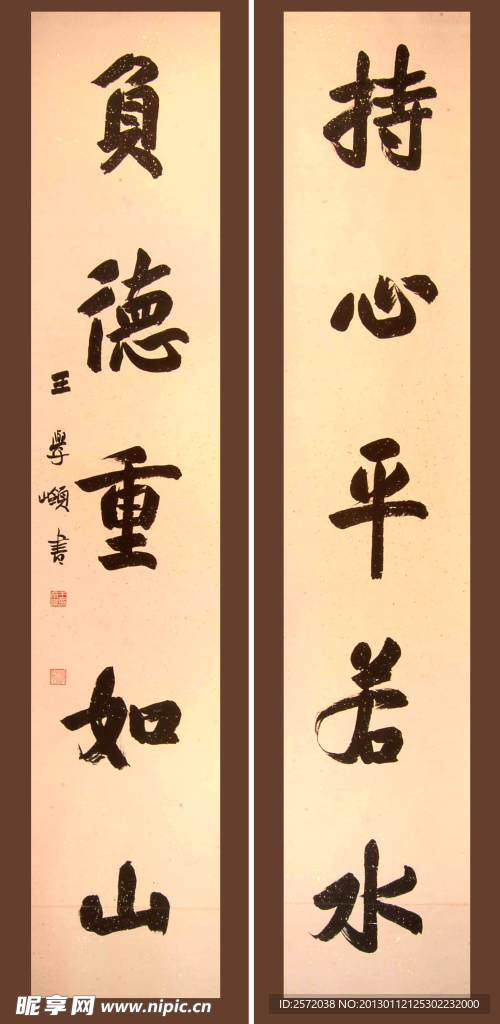 持心平若水
負德重如山
王學嶺書
昵享网 www.nipic.cn
ID:2572038 NO:20130112125302232000